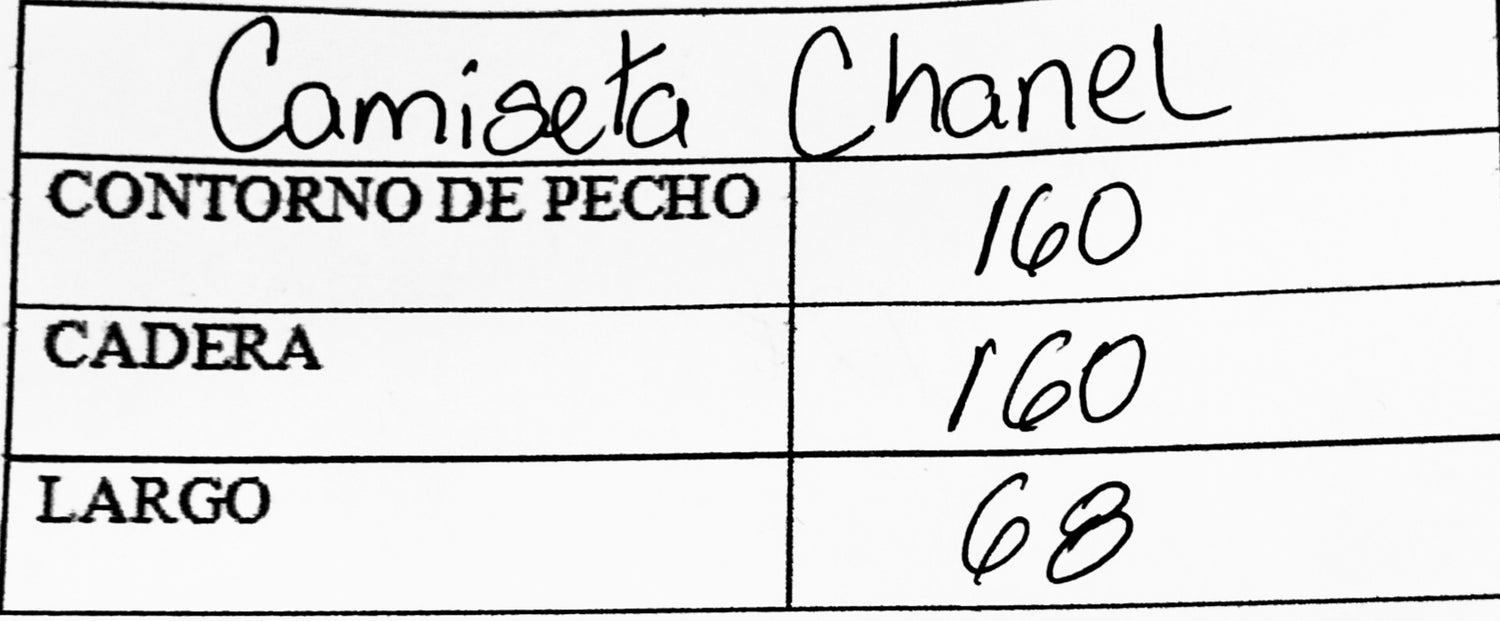 Camiseta Chanel
CONTORNO DE PECHO 160
CADERA 160
LARGO 68